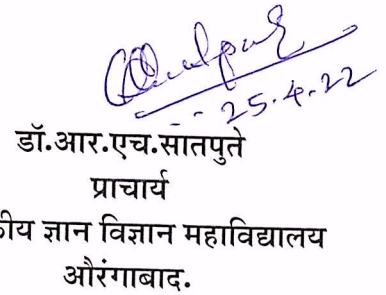 25.4.22
डॉ.आर.एच.सातपुते
प्राचार्य
ज्ञान विज्ञान महाविद्यालय
औरंगाबाद.